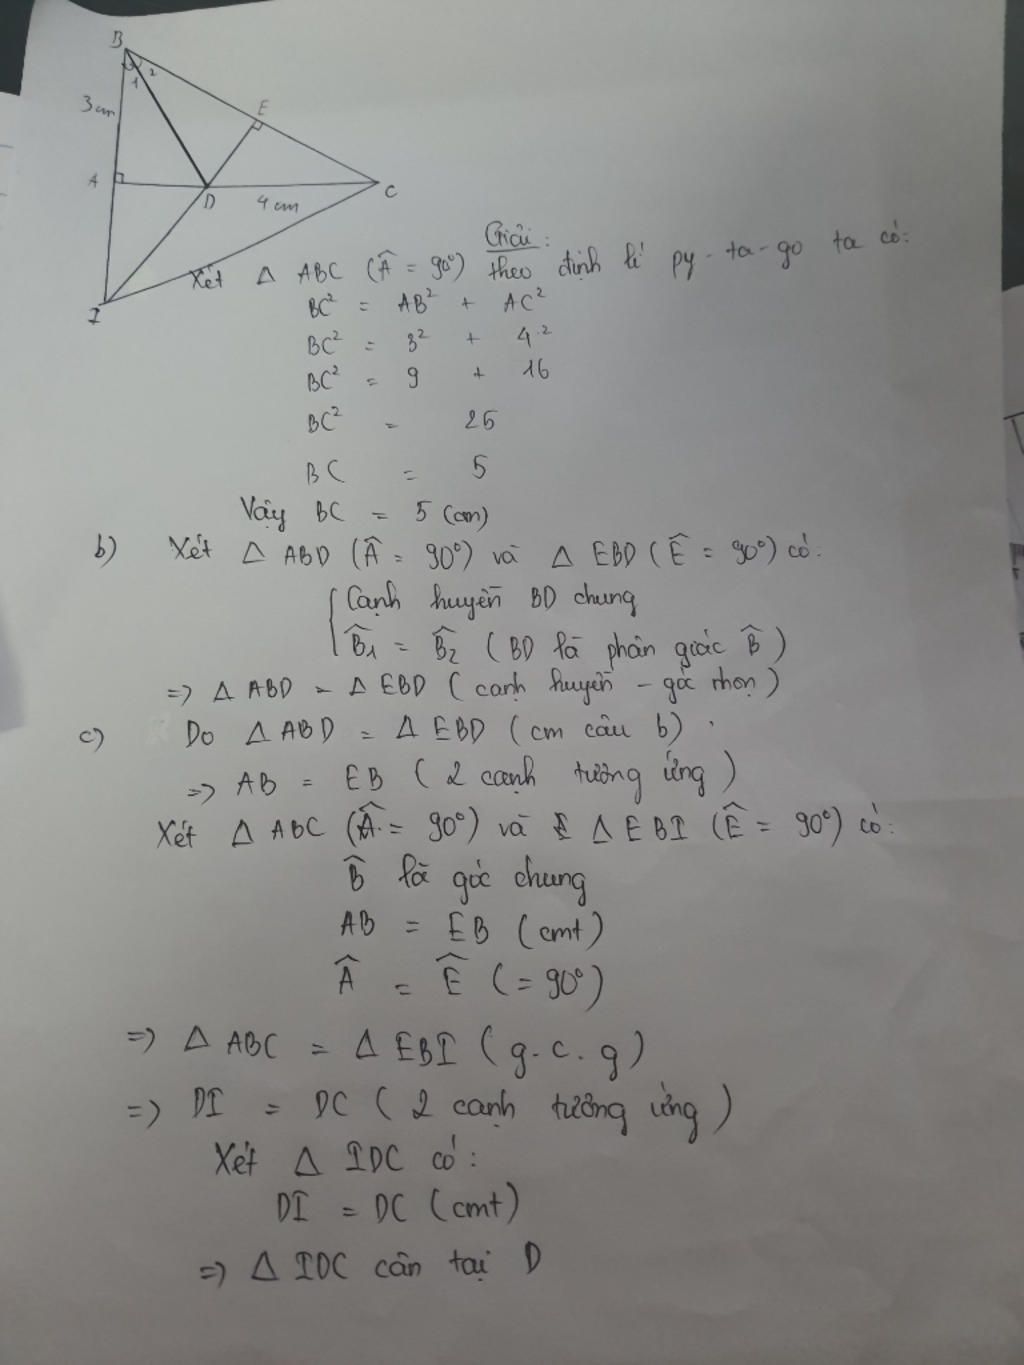 B
1 2
3 cm
E
A
D
4 cm
C
I
Giải:
Xét Δ ABC (Â = 90°) theo định lí py-ta-go ta có:
BC² = AB² + AC²
BC² = 3² + 4²
BC² = 9 + 16
BC² = 25
BC = 5
Vậy BC = 5 (cm)
b) Xét Δ ABD (Â = 90°) và Δ EBD (Ê = 90°) có:
Cạnh huyền BD chung
B̂1 = B̂2 (BD là phân giác B̂)
=> Δ ABD = Δ EBD (cạnh huyền - góc nhọn)
c) Do Δ ABD = Δ EBD (cm câu b)
=> AB = EB (2 cạnh tương ứng)
Xét Δ ABC (Â = 90°) và Δ EBI (Ê = 90°) có:
B̂ là góc chung
AB = EB (cmt)
Â = Ê (= 90°)
=> Δ ABC = Δ EBI (g.c.g)
=> DI = DC (2 cạnh tương ứng)
Xét Δ IDC có:
DI = DC (cmt)
=> Δ IDC cân tại D